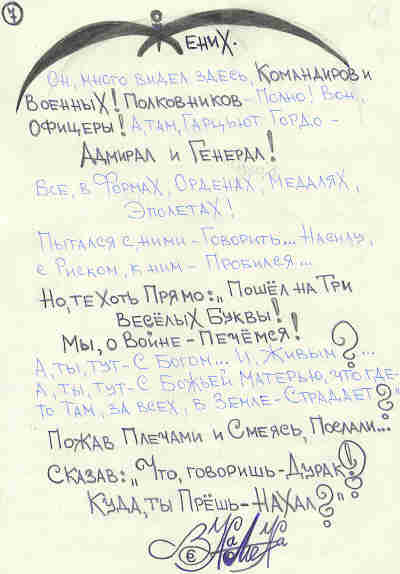 7
Жених.
Он, много видел здесь, Командиров и
Военных! Полковников - Полно! Вон,
Офицеры! А там, Гарцуют Гордо -
Адмирал и Генерал!
Все, в Формах, Орденах, Медалях,
Эполетах!
Пытался с ними - Говорить... Насилу,
с Риском, к ним - Пробился...
Но, те хоть Прямо: „Пошёл на Три
Весёлых Буквы!
Мы, о Войне - Печёмся!
А, ты, тут - С Богом... И, Живым?...
А, ты, тут - С Божьей Матерью, что где-
то Там, за всех, в Земле - Страдает?"
Пожав Плечами и Смеясь, Послали...
Сказав: „Что, говоришь - Дурак!
Куда, ты Прёшь - Нахал?"